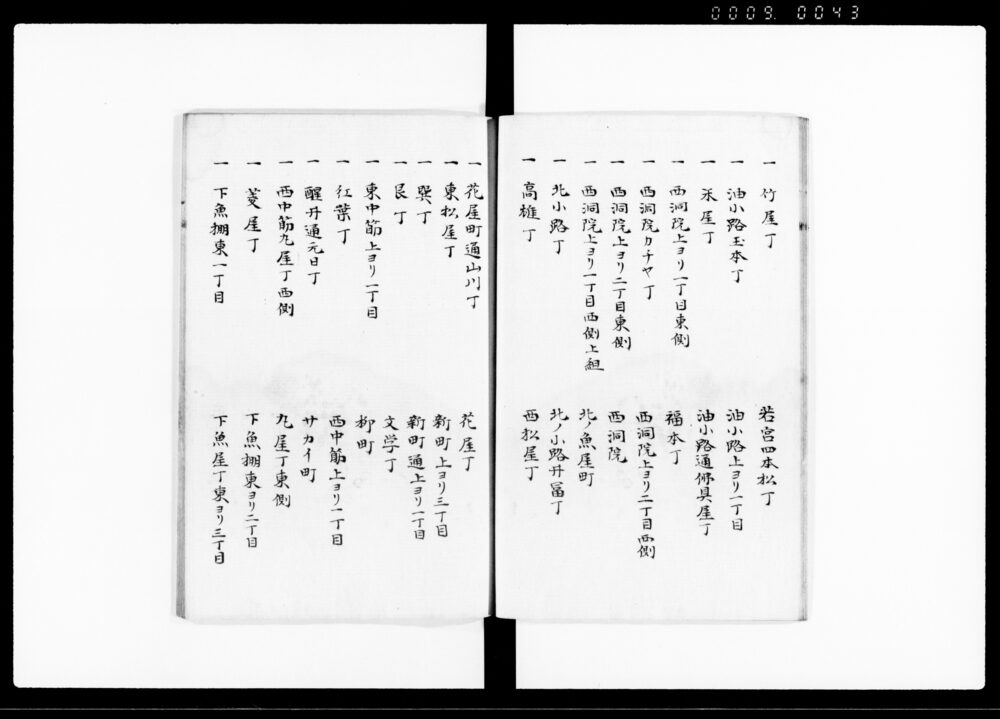 0009. 0043
一 竹屋丁 若宮四本松丁
一 油小路玉本丁 油小路上ヨリ一丁目
一 米屋丁 油小路通佛具屋丁
一 西洞院上ヨリ一丁目東側 福本丁
一 西洞院カチヤ丁 西洞院上ヨリ二丁目西側
一 西洞院上ヨリ二丁目東側 西洞院
一 西洞院上ヨリ一丁目西側上組 北ノ魚屋町
一 北小路丁 北ノ小路丹冨丁
一 高雄丁 西松屋丁
一 花屋町通山川丁 花屋丁
一 東松屋丁 新町上ヨリ三丁目
一 巽丁 新町通上ヨリ一丁目
一 艮丁 文学丁
一 東中筋上ヨリ一丁目 柳町
一 紅葉丁 西中筋上ヨリ一丁目
一 醒井通元日丁 サカイ町
一 西中筋九屋丁西側 九屋丁東側
一 菱屋丁 下魚棚東ヨリ二丁目
一 下魚棚東一丁目 下魚屋丁東ヨリ三丁目